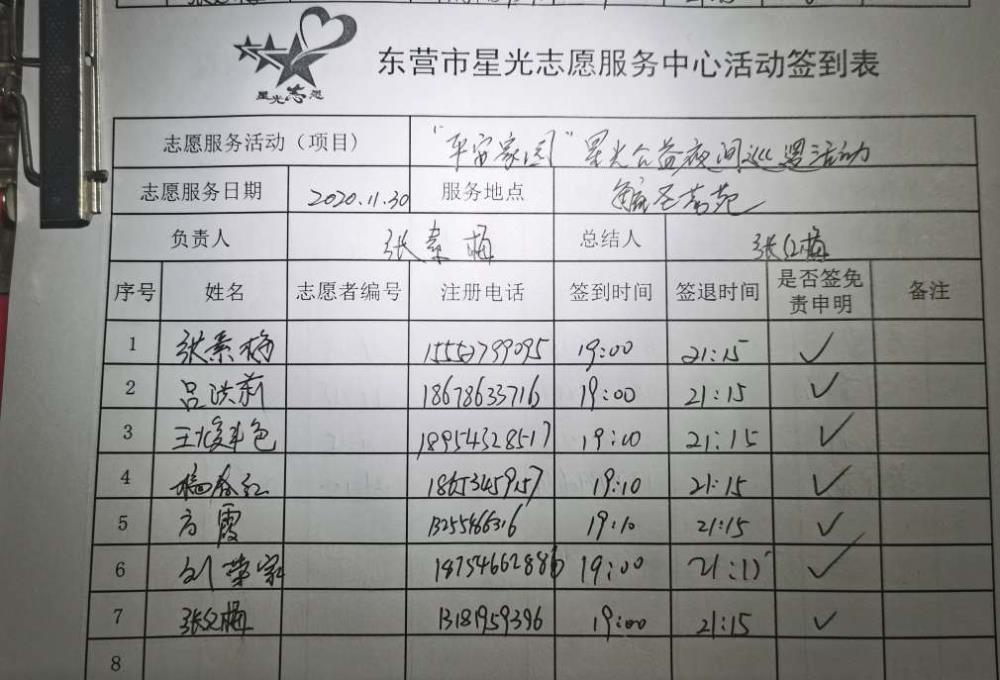 星光志愿
东营市星光志愿服务中心活动签到表
志愿服务活动（项目） “平安家园”星光公益夜间巡逻活动
志愿服务日期 2020.11.30 服务地点
负责人 张素梅 总结人 张红梅
序号 姓名 志愿者编号 注册电话 签到时间 签退时间 是否签免责申明 备注
1 张素梅 15552799095 19:00 21:15 ✓
2 吕洪莉 18678633716 19:00 21:15 ✓
3 18954328517 19:00 21:15 ✓
4 杨春红 19:10 21:15 ✓
5 方霞 19:10 21:15 ✓
6 刘荣家 18754662886 19:00 21:15 ✓
7 13181959396 19:00 21:15 ✓
8